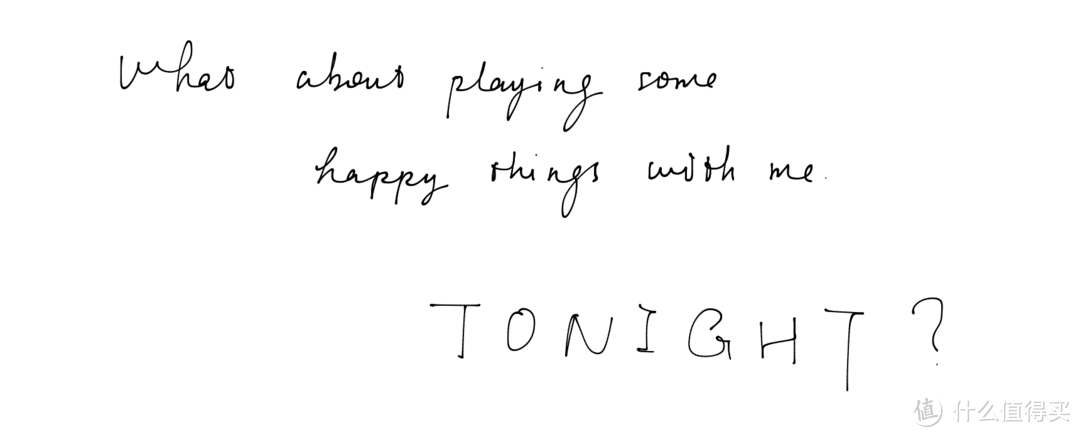 What about playing some
happy things with me.
TONIGHT?
值 什么值得买